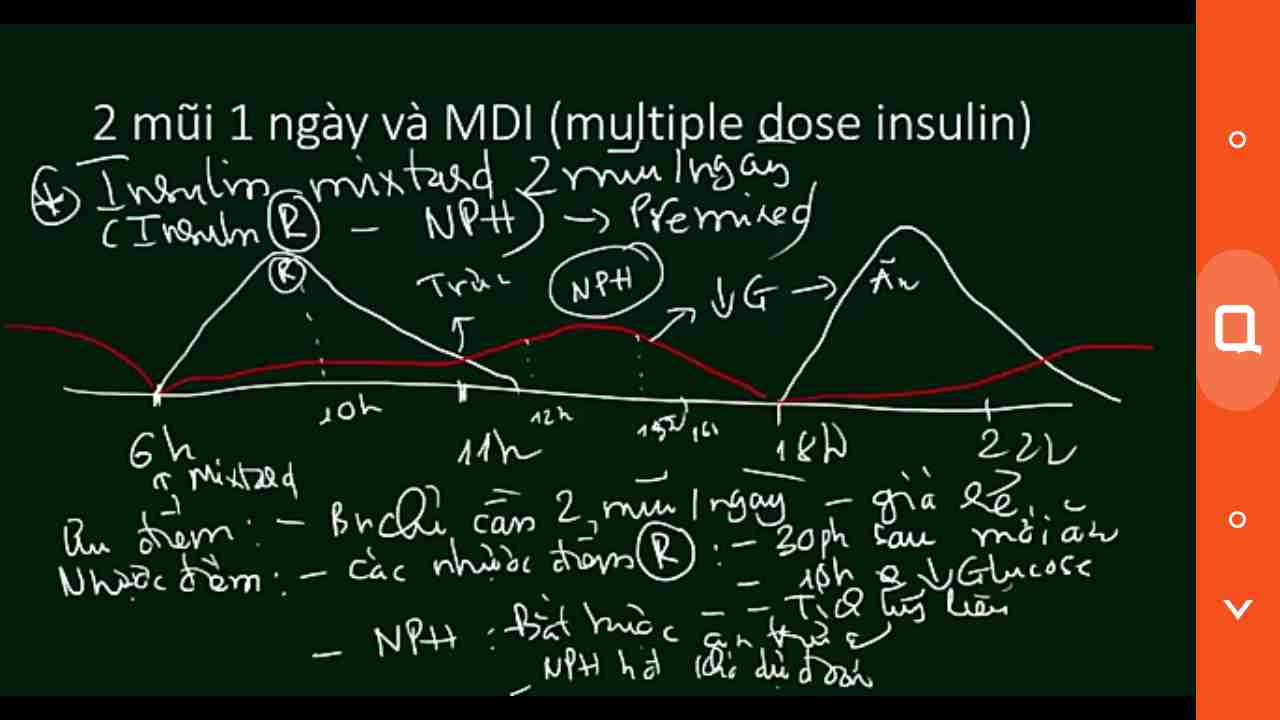 2 mũi 1 ngày và MDI (multiple dose insulin)
Insulin mixtard 2 mũi 1 ngay
(Insulin R - NPH) → Premixed
R
Trưa
NPH
↓G → Ăn
10h
12h
16h
6h
11h
18h
22h
↑ Mixtard
Ưu điểm: - Bn chỉ cần 2 mũi 1 ngay - giá rẻ
Nhược điểm: - các nhược điểm R : - 30ph sau mới ăn
- 10h ↓Glucose
- NPH : Bắt buộc ăn trưa -
- NPH hơi khó dự đoán